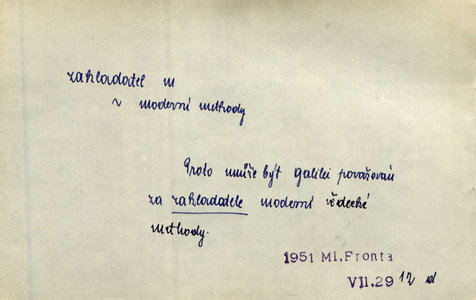 zakladatel m
~ moderní methody
Proto může být Galilei považován
za zakladatele moderní vědecké
methody.
1951 Ml.Fronta
VII.29 12 d